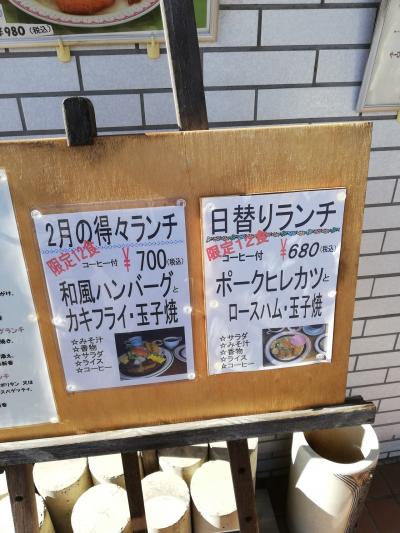 ¥980(税込)
2月の得々ランチ
限定12食
コーヒー付 ¥700(税込)
和風ハンバーグと
カキフライ・玉子焼
☆みそ汁
☆香物
☆サラダ
☆ライス
☆コーヒー
日替りランチ
限定12食
コーヒー付 ¥680(税込)
ポークヒレカツと
ロースハム・玉子焼
☆サラダ
☆みそ汁
☆香物
☆ライス
☆コーヒー